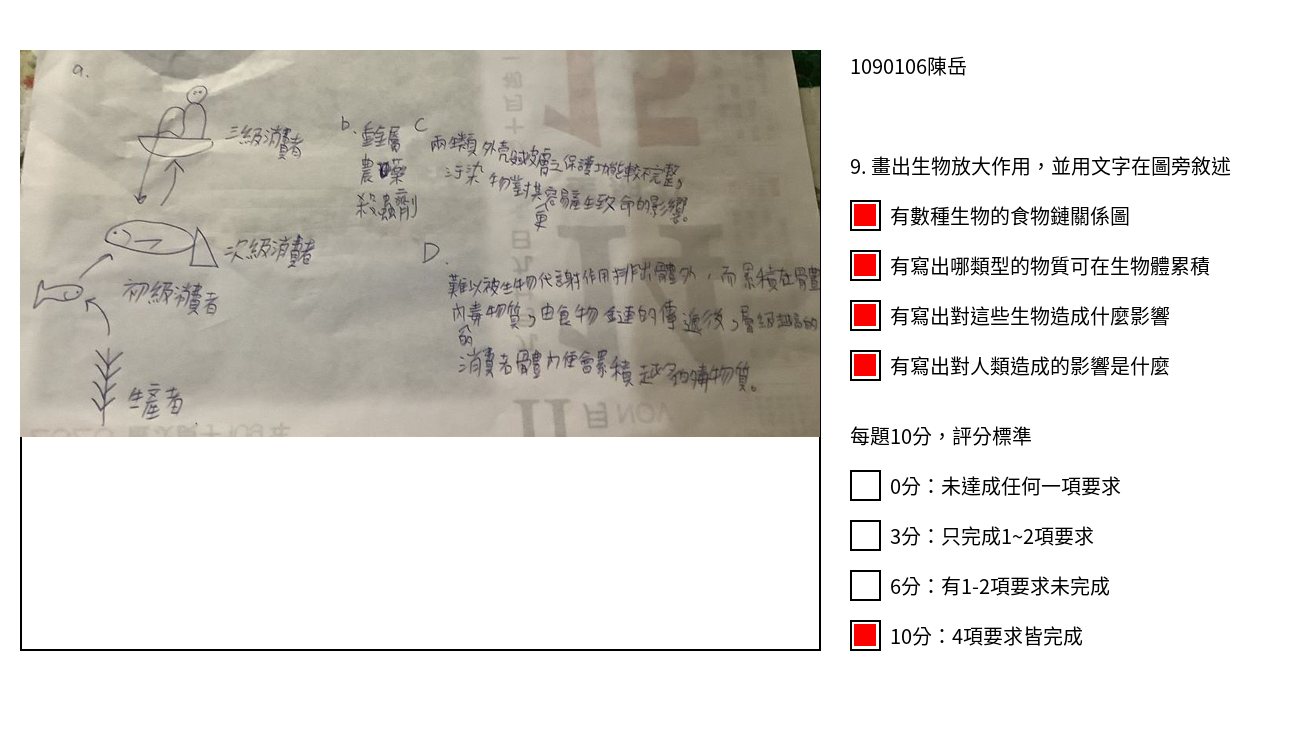 a.
三級消費者
次級消費者
初級消費者
生產者
b. 重金屬
農藥
殺蟲劑
C
兩棲類外殼或皮膚之保護功能較不完整,
污染物對其更容易產生致命的影響。
D.
難以被生物代謝作用排出體外,而累積在體
內的毒物質,由食物鏈的傳遞後,層級越高的
消費者體內便會累積越多的毒物質。
1090106陳岳
9. 畫出生物放大作用,並用文字在圖旁敘述
有數種生物的食物鏈關係圖
有寫出哪類型的物質可在生物體累積
有寫出對這些生物造成什麼影響
有寫出對人類造成的影響是什麼
每題10分,評分標準
0分:未達成任何一項要求
3分:只完成1~2項要求
6分:有1-2項要求未完成
10分:4項要求皆完成